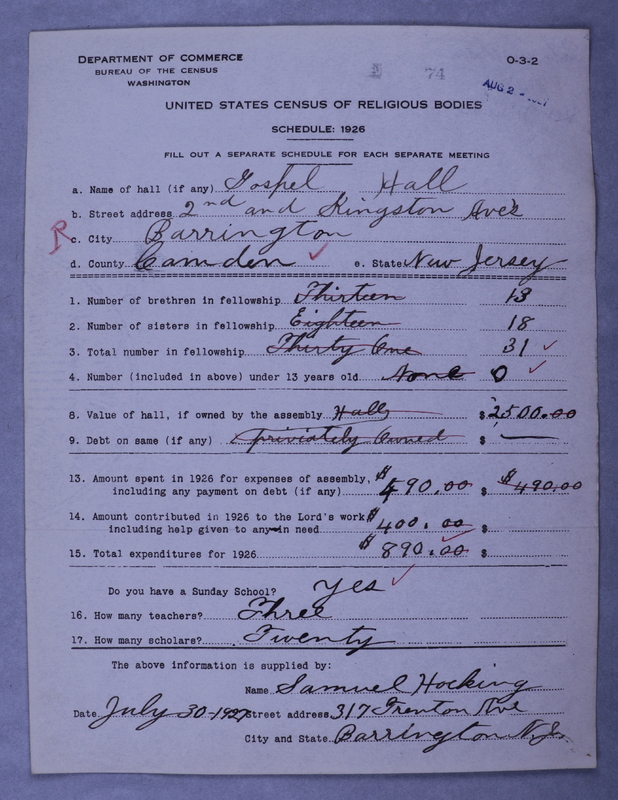 DEPARTMENT OF COMMERCE
BUREAU OF THE CENSUS
WASHINGTON
O-3-2
74
AUG 2
UNITED STATES CENSUS OF RELIGIOUS BODIES
SCHEDULE: 1926
FILL OUT A SEPARATE SCHEDULE FOR EACH SEPARATE MEETING
a. Name of hall (if any) Gospel Hall
b. Street address 2nd and Kingston Ave's
R
c. City Barrington
d. County Camden ✓ e. State New Jersey
1. Number of brethren in fellowship Thirteen 13
2. Number of sisters in fellowship Eighteen 18
3. Total number in fellowship Thirty One 31 ✓
4. Number (included in above) under 13 years old None 0 ✓
8. Value of hall, if owned by the assembly Hall $2500.00
9. Debt on same (if any) priviately Owned $ —
13. Amount spent in 1926 for expenses of assembly,
including any payment on debt (if any) $490.00 $ $490.00
14. Amount contributed in 1926 to the Lord's work
including help given to any in need $400.00 $
15. Total expenditures for 1926 $890.00 $
Do you have a Sunday School? Yes ✓
16. How many teachers? Three
17. How many scholars? Twenty
The above information is supplied by:
Name Samuel Hocking
Date July 30-1927 Street address 317 Trenton Ave
City and State Barrington N.J.